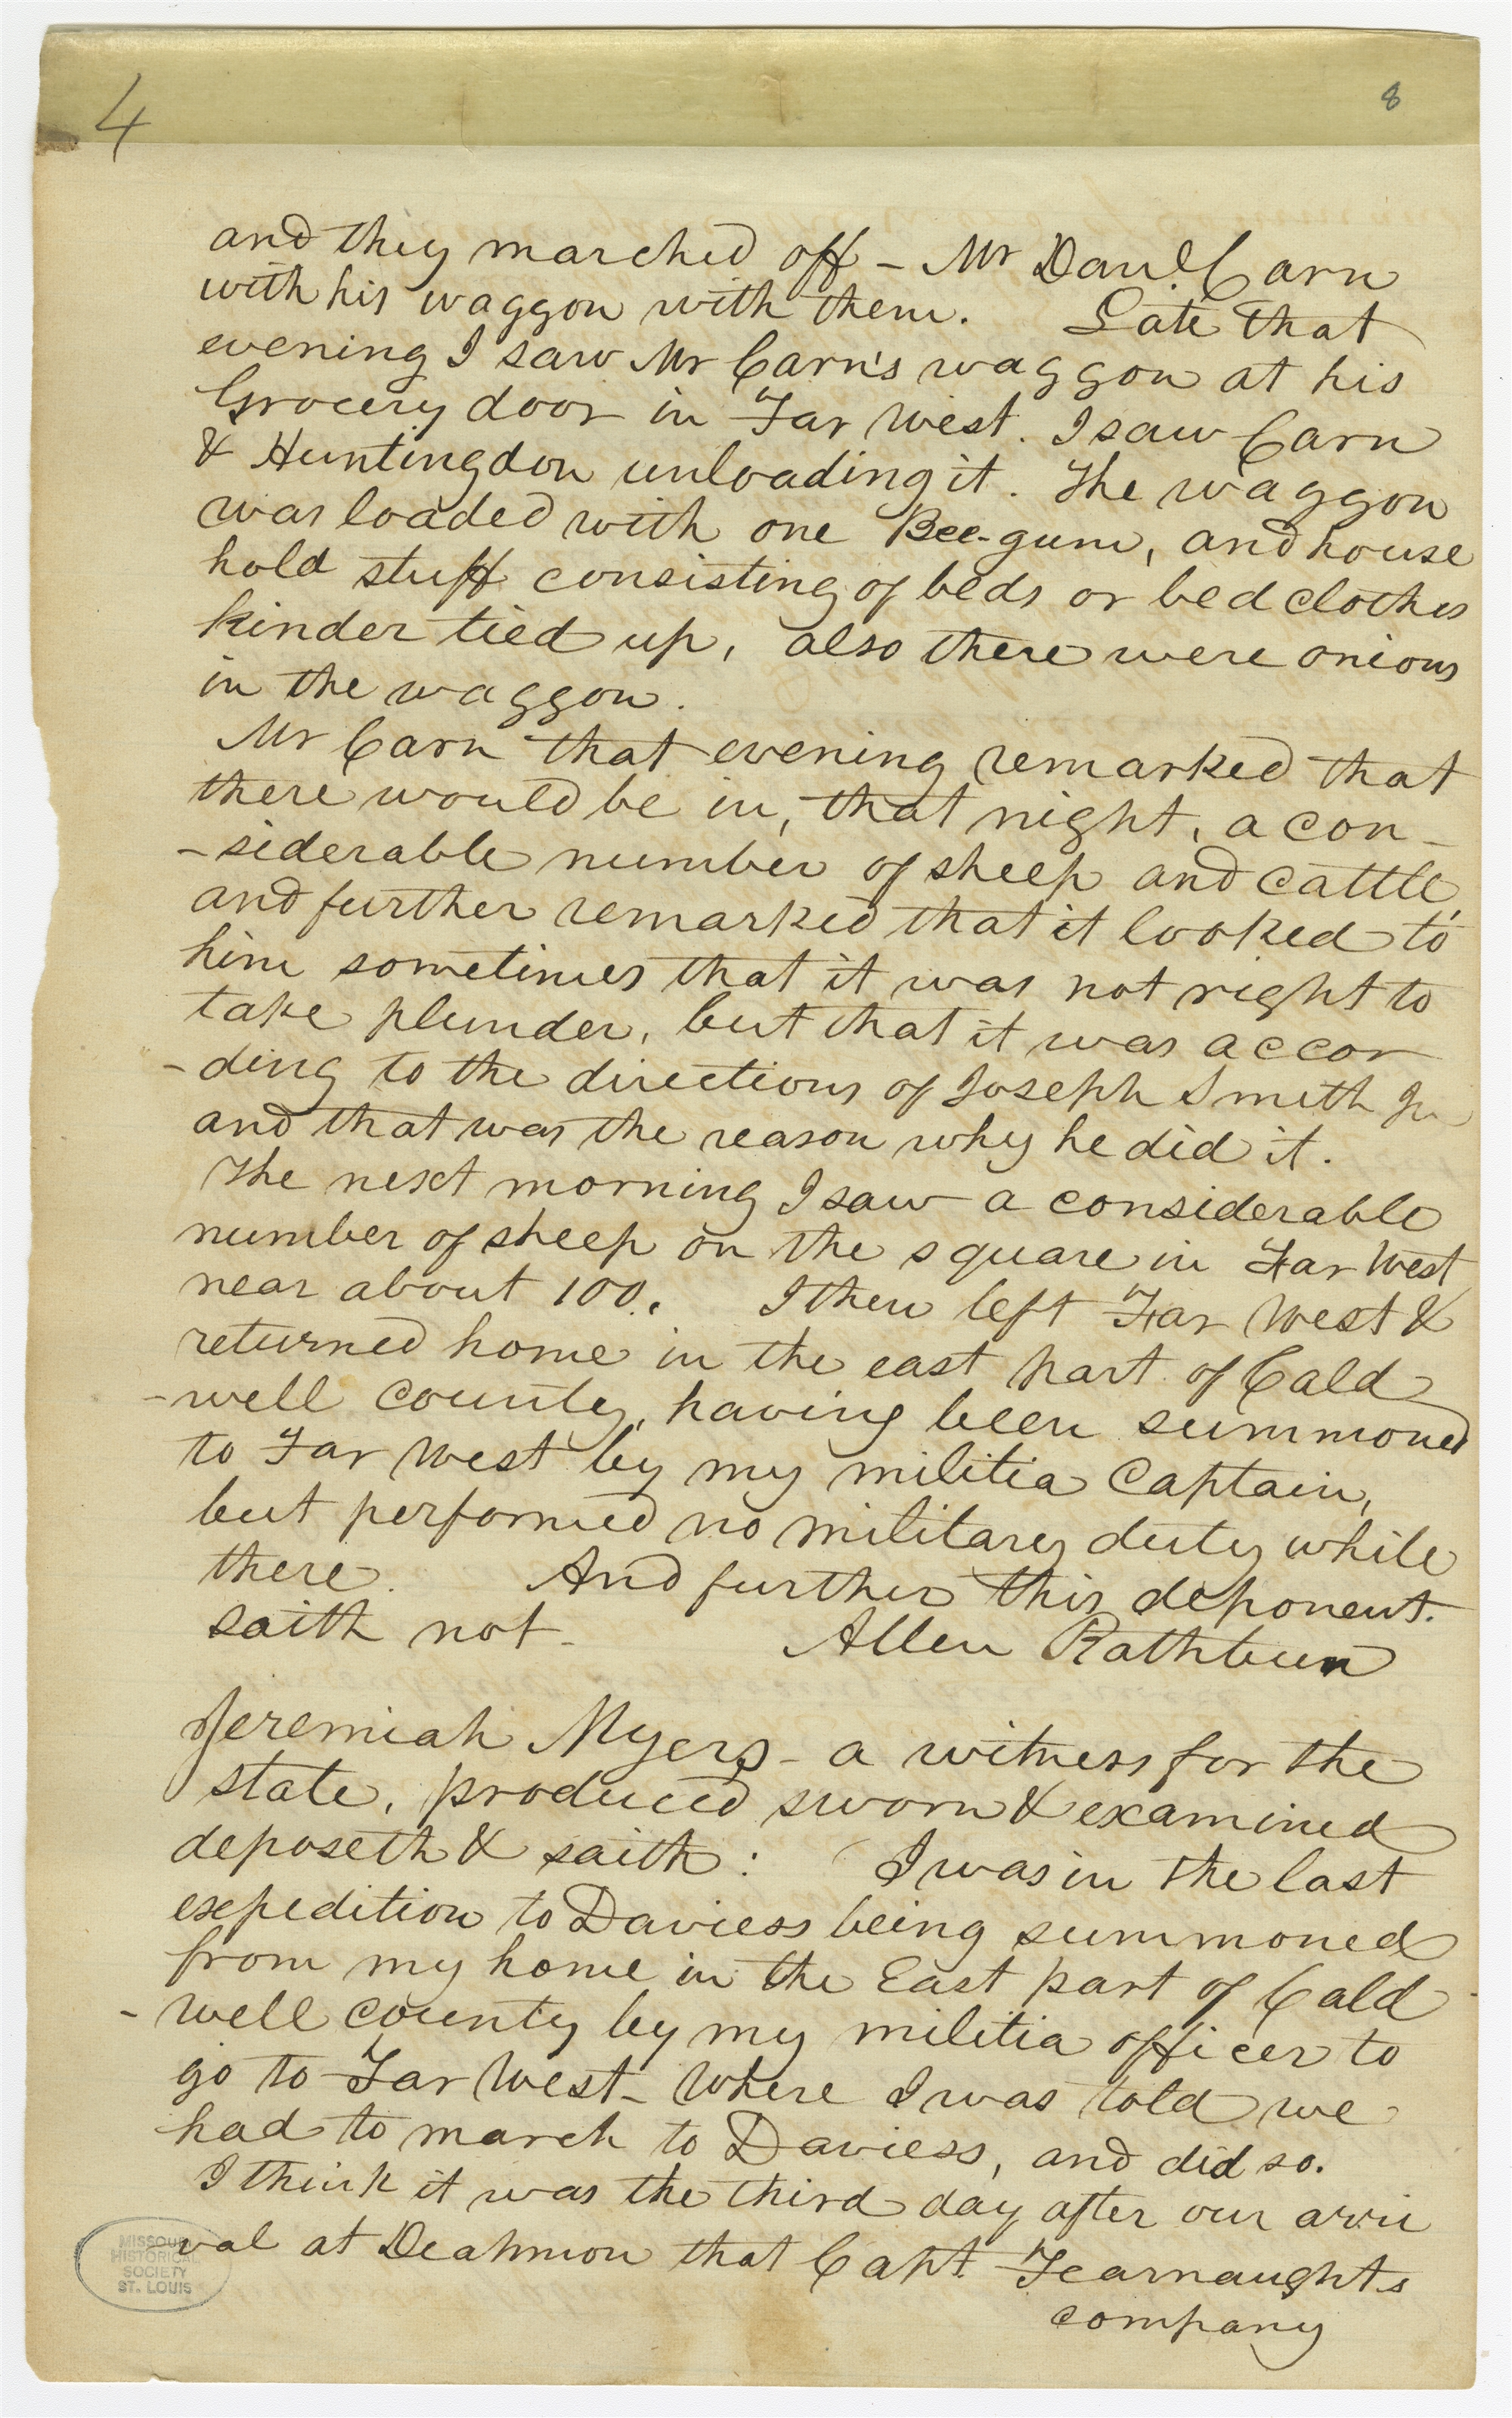 4
8
and they marched off – Mr Danl. Carn
with his waggon with them. Late that
evening I saw Mr Carn's waggon at his
Grocery door in Far West. I saw Carn
& Huntingdon unloading it. The waggon
was loaded with one Bee-gum, and house
hold stuff consisting of beds or bed clothes
kinder tied up, also there were onions
in the waggon.
Mr Carn that evening remarked that
there would be in, that night, a con-
-siderable number of sheep and cattle,
and further remarked that it looked to
him sometimes that it was not right to
take plunder, but that it was accor
-ding to the directions of Joseph Smith Jr
and that was the reason why he did it.
The next morning I saw a considerable
number of sheep on the square in Far West
near about 100. I then left Far West &
returned home in the east part of Cald
-well county, having been summoned
to Far West by my militia Captain,
but performed no military duty while
there. And further this deponent.
saith not – Allen Rathbun
Jeremiah Myers – a witness for the
state, produced sworn & examined
deposeth & saith: I was in the last
expedition to Daviess being summoned
from my home in the East part of Cald
-well county by my militia officer to
go to Far West – Where I was told we
had to march to Daviess, and did so.
I think it was the third day after our arri
-val at Deahmon that Capt. Fearnaughts
company
MISSOURI
HISTORICAL
SOCIETY
ST. LOUIS